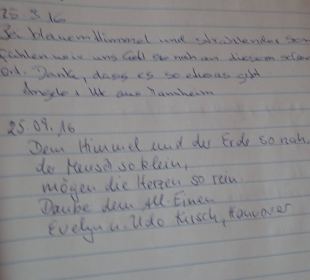 25.8.16
Bei blauem Himmel und strahlender
fühlen wir uns Gott so nah an diesem
Ort. Danke, dass es so etwas gibt
Angela + Ute aus
25.08.16
Dem Himmel und der Erde so nah,
der Mensch so klein,
mögen die Herzen so rein.
Danke dem All-Einen
Evelyn u. Udo Kirsch, Hannover